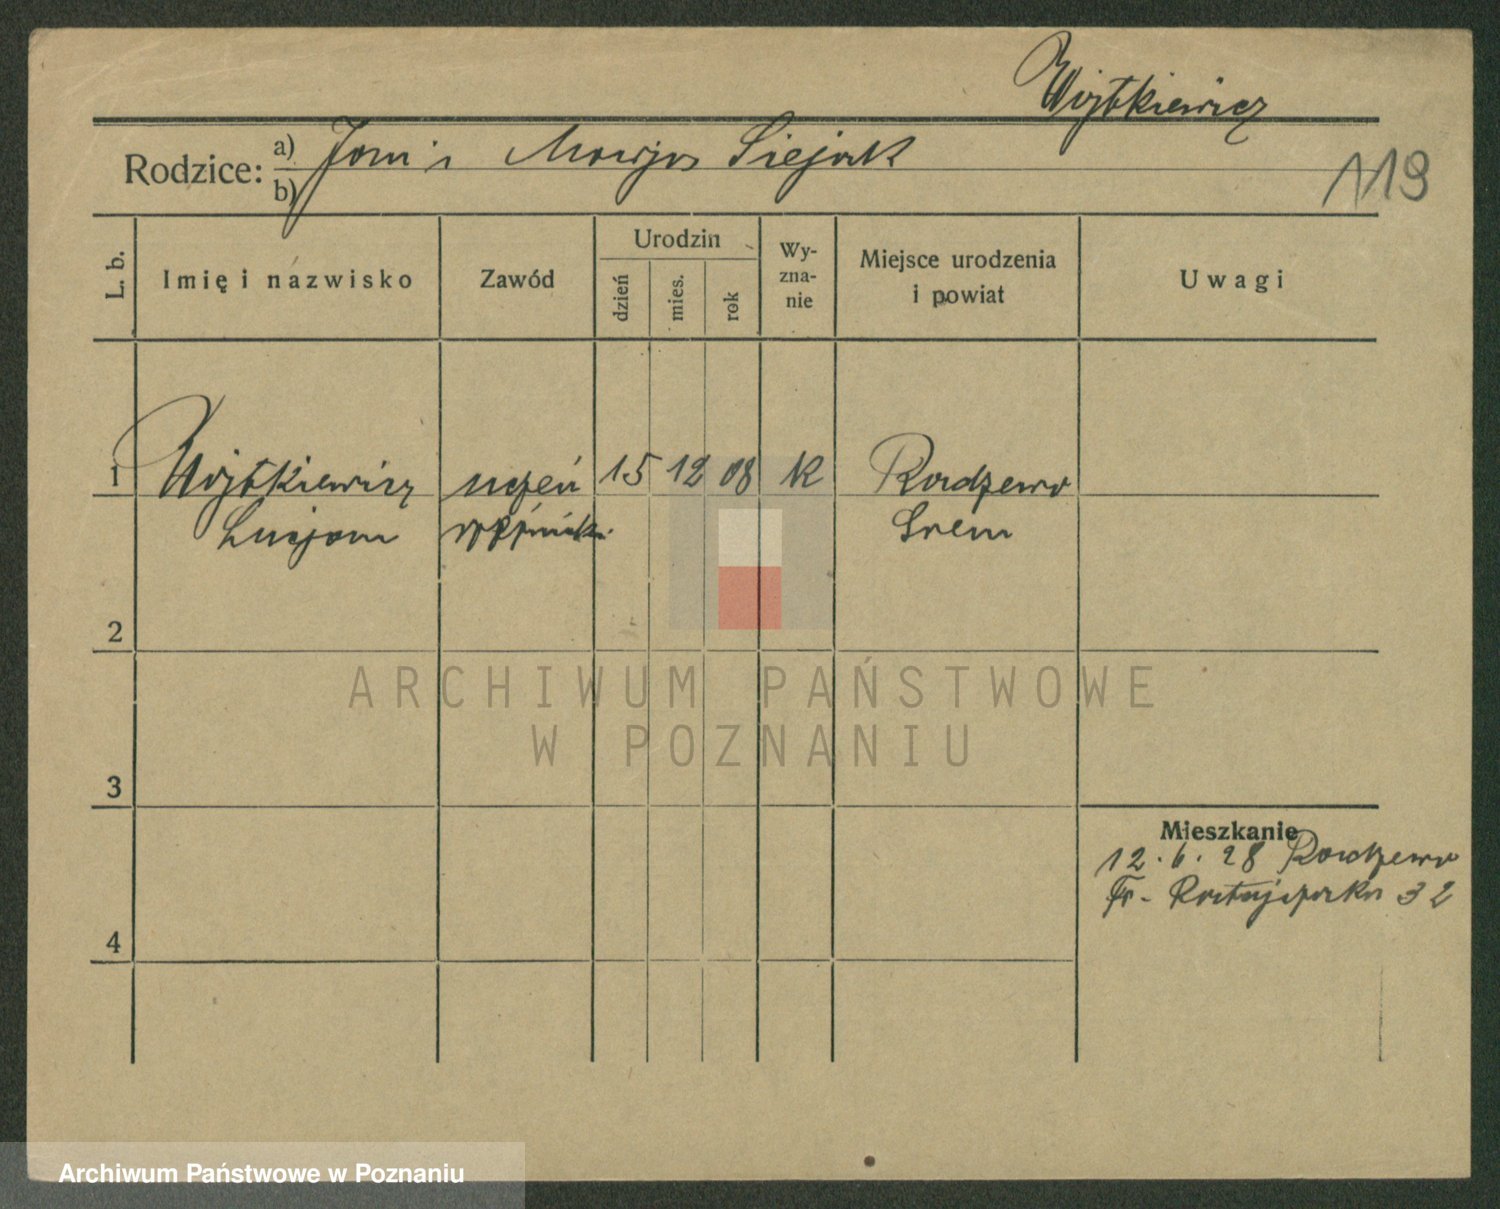 Wojtkiewicz
Rodzice: a) Jan i Marja Siejak
b)
119
L. b.
Imię i nazwisko
Zawód
Urodzin
dzień
mies.
rok
Wy-
zna-
nie
Miejsce urodzenia
i powiat
Uwagi
1 Wojtkiewicz uczeń 15 12 08 k Radzewo
Lucjan Srem
2
3
4
Mieszkanie
12. 6. 28 Radzewo
Fr. Ratajczaka 32
ARCHIWUM PAŃSTWOWE
W POZNANIU
Archiwum Państwowe w Poznaniu